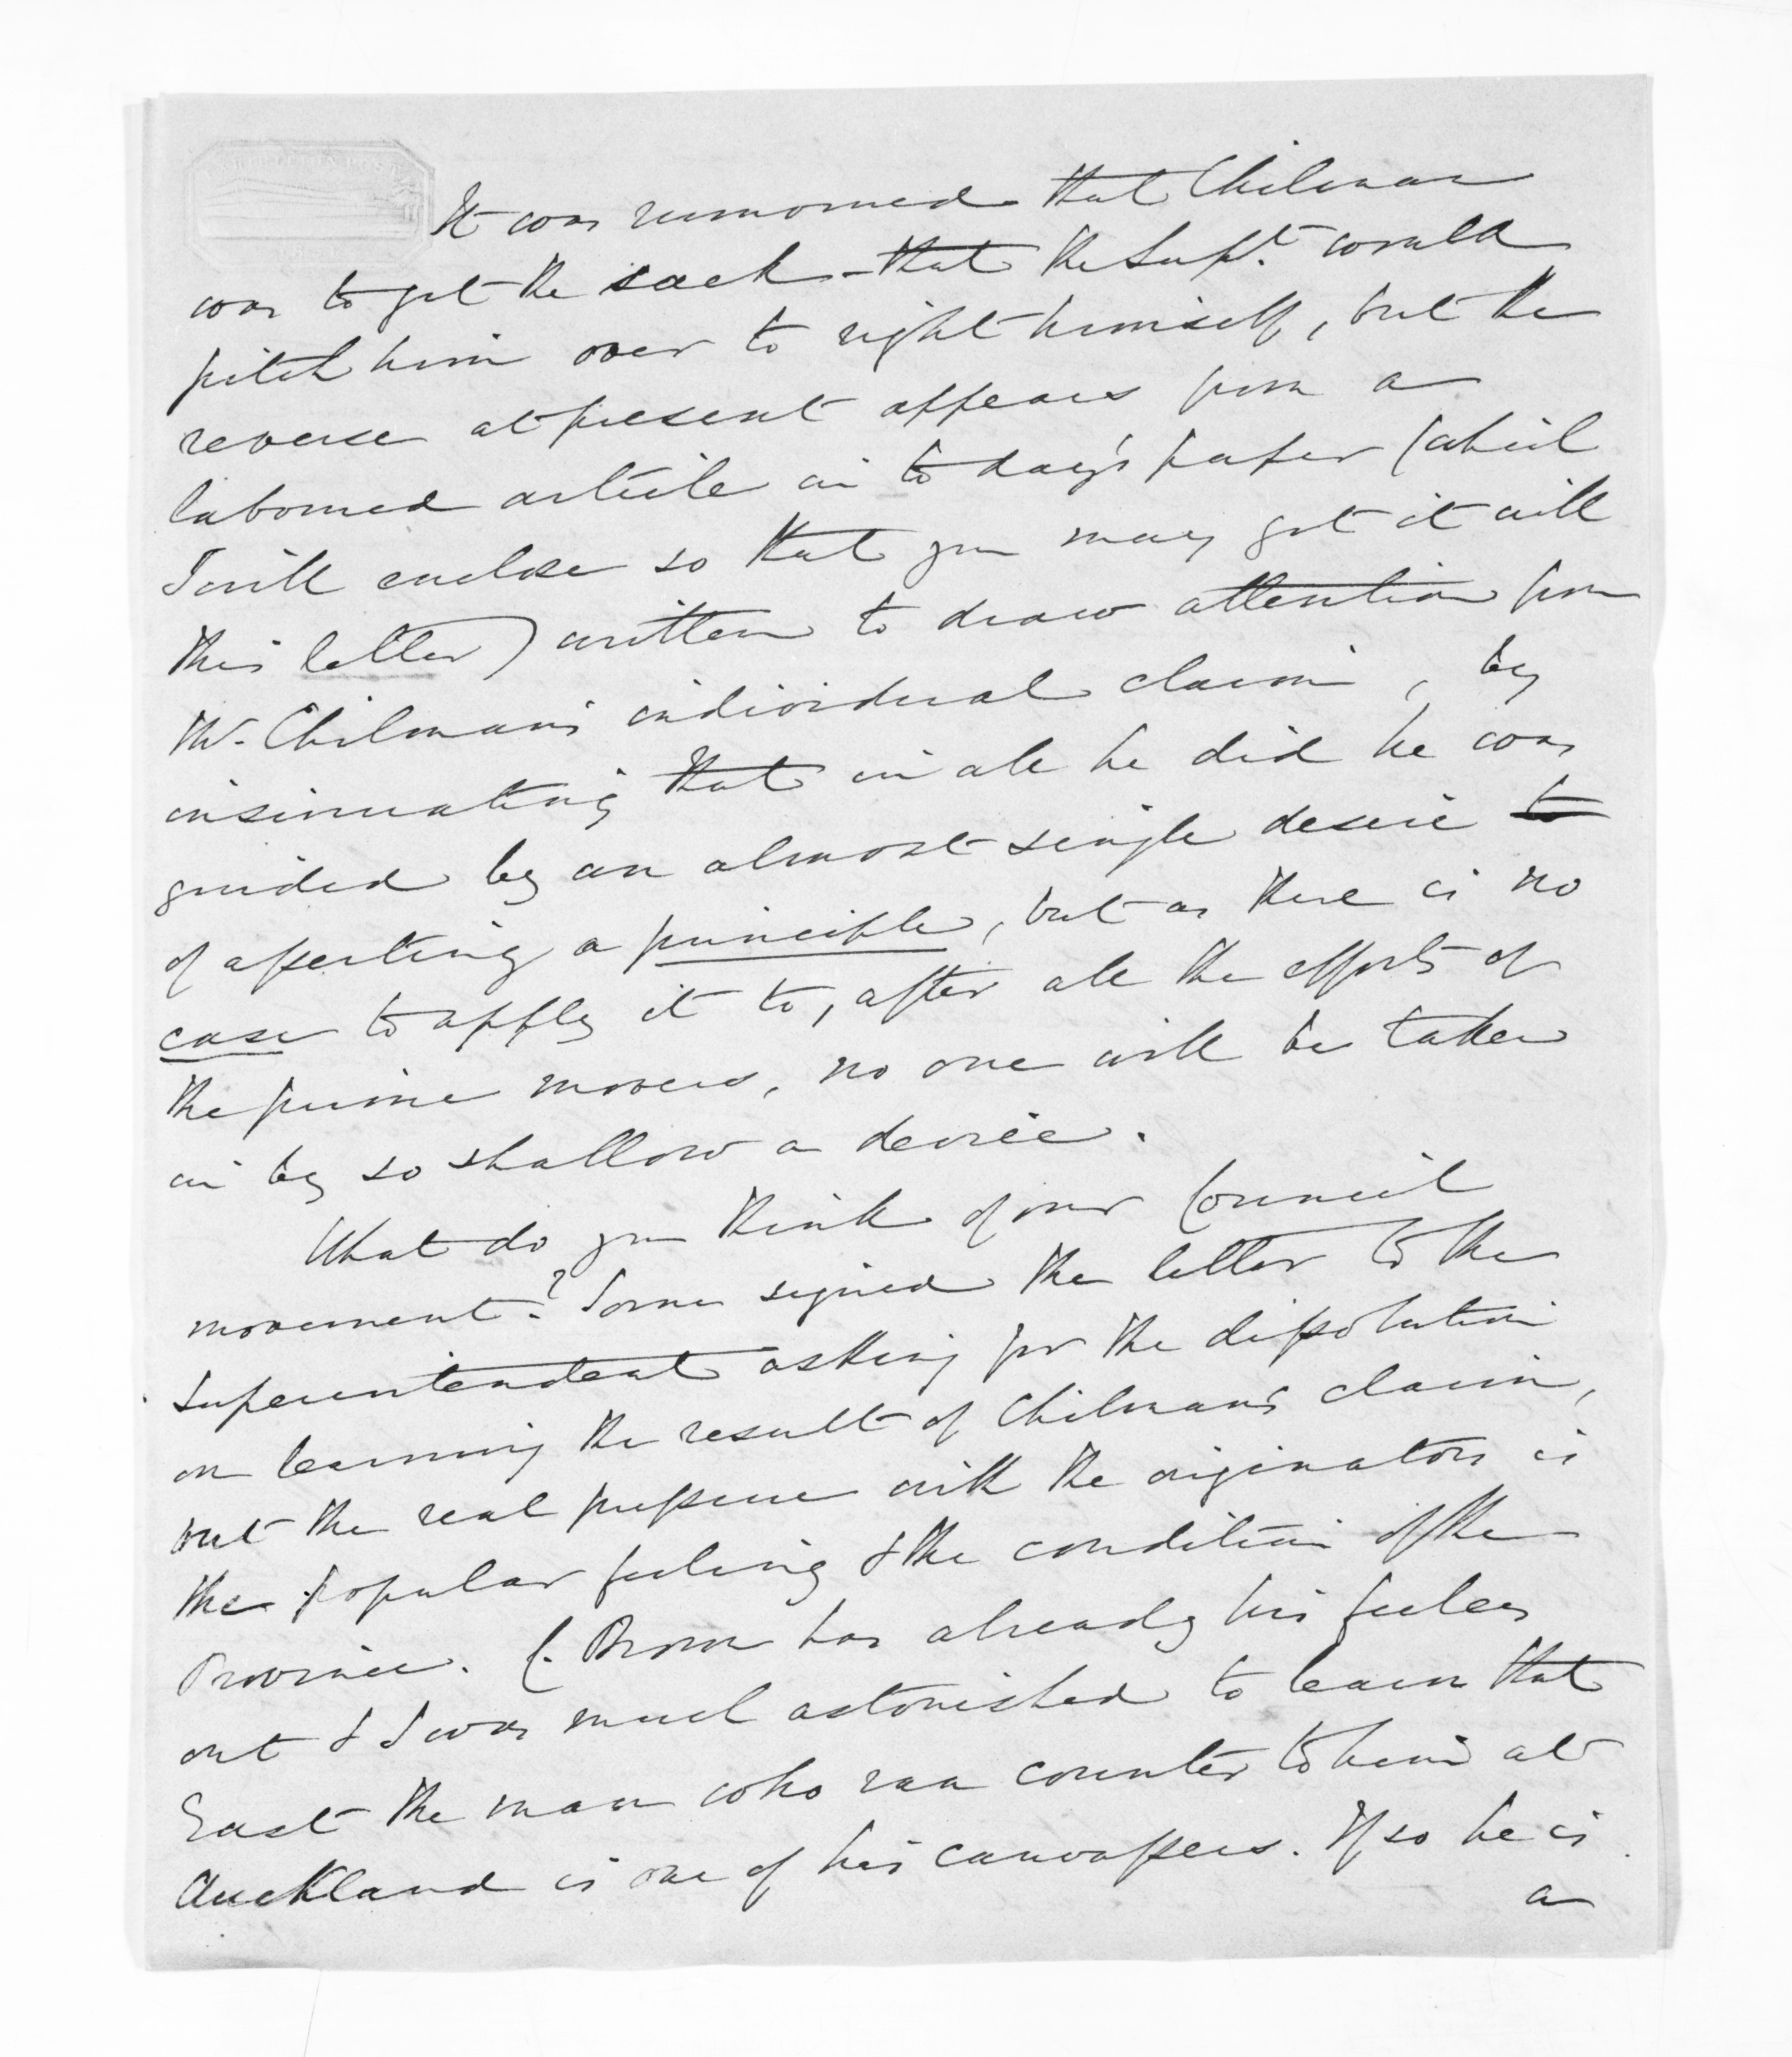 It was rumored that Chilman
was to get the sack - that the Supt. would
pitch him over to right himself, but the
reverse at present appears from a
labored article in to day's paper (which
I will enclose so that you may get it with
this letter) written to draw attention from
Mr. Chilman's individual claim, by
insinuating that in all he did he was
guided by an almost single desire to
of asserting a principle, but as there is no
case to apply it to, after all the efforts of
the prime movers, no one will be taken
in by so shallow a device.
What do you think of our Council
movement? Some signed the letter to the
Superintendent asking for the dissolution
on learning the result of Chilman's claim,
but the real pressure with the originators is
the popular feeling & the condition of the
Province. C. Brown has already his feelers
out & I was much astonished to learn that
East the man who ran counter to him at
Auckland is one of his canvassers. If so he is
a